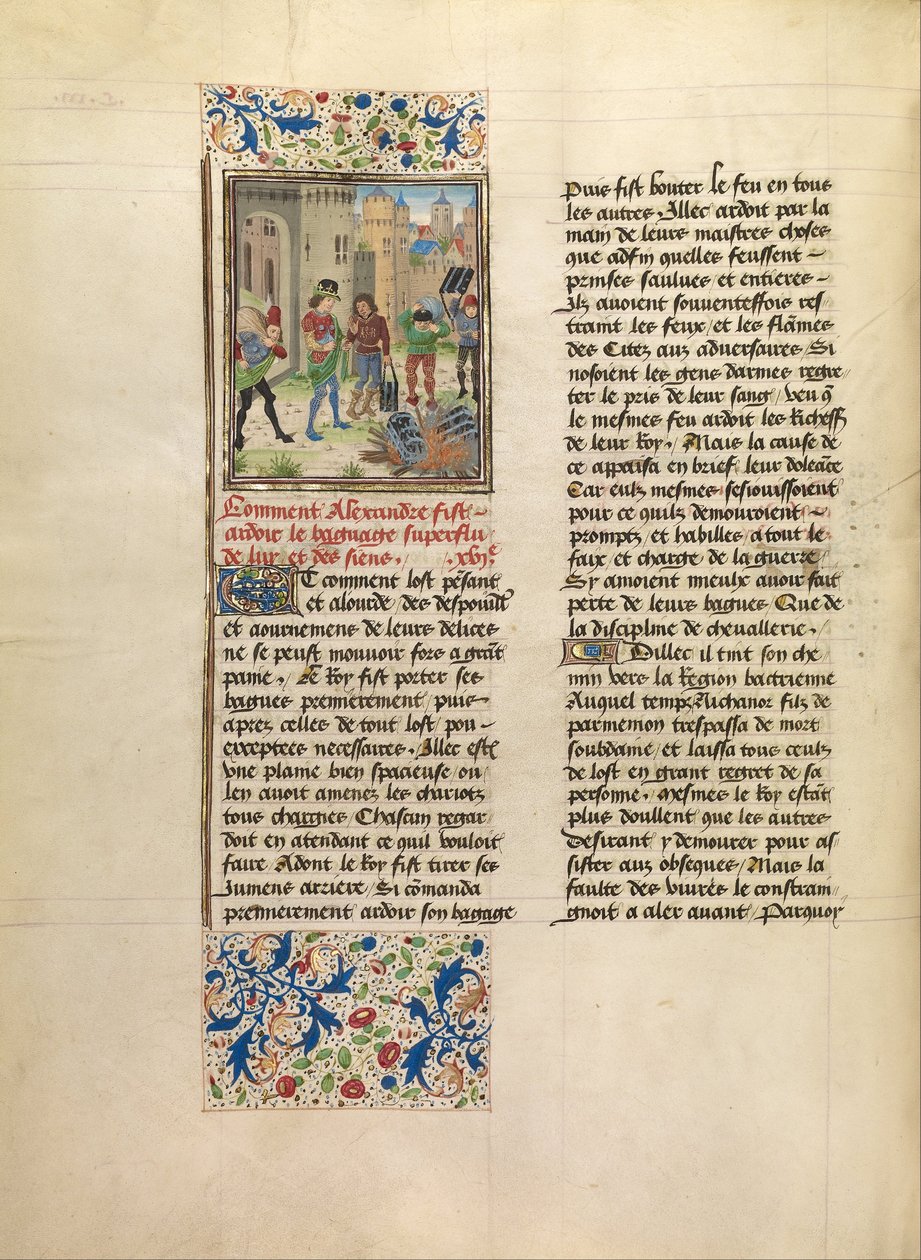 Comment Alexandre fist
ardoir le bagnage superflu
de luy et des siens. .xvj.e
Et comment lost pesant
et alourde / des despouilles
et aournemens de leurs delices
ne se peust mouvoir fors a grāt
paine. Le Roy fist porter ses
bagues premierement / puis
aprez celles de tout lost / pou
exceptees necessaires. Illec est
vne plaine bien spacieuse / ou
len auoit amenez les chariotz
tous chargies / Chascun regar
doit en atendant ce quil vouloit
faire / Adont le Roy fist tirer ses
Jumens arriere / Si cōmanda
premierement ardoir son bagage
Puis fist bouter le feu en tous
les autres. Illec ardoit par la
main de leurs maistres choses
que adfin quelles feussent
prinses saulues et entieres
Ilz auoient souuenteffois res
traint les feux / et les flāmes
des Citez aux aduersaires / Si
nosoient les gens darmes regre
ter le pris de leur sang / veu q̄
le mesmes feu ardoit les Richess
de leur Roy. Mais la cause de
ce appaisa en brief leur doleāce
Car eulx mesmes sesiouissoient
pour ce quilz demouroient
promptz et habilles a tout le
faix et charge de la guerre
Sy amoient mieulx auoir fait
perte de leurs bagues / Que de
la discipline de cheuallerie.
Dillec il tint son che
min vers la Region bactrienne
Auquel temps Nichanor filz de
parmenion trespassa de mort
soubdaine / et laissa tous ceulx
de lost en grant regret de sa
personne. Mesmes le Roy estāt
plus doullent que les autres
Desirant y demourer pour as
sister aux obseques / Mais la
faulte des viures le constrain
gnoit a aler auant / Parquoy